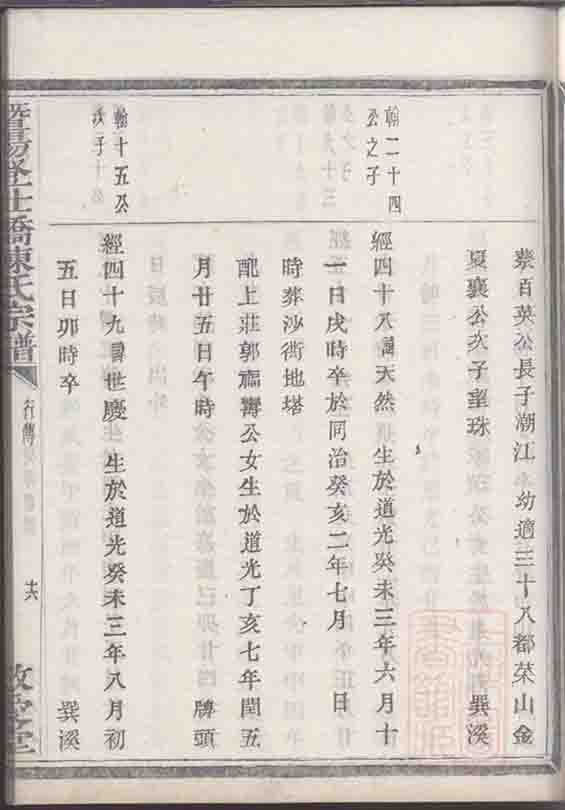 棠百英公長子潮江 幼適三十八都榮山金
夏襄公次子望珠 巽溪
翰二十四
公之子
經四十八 諱天然 生於道光癸未三年六月十
一日戌時卒於同治癸亥二年七月 日
時葬沙街地塔
配上莊郭 壽公女生於道光丁亥七年閏五
月廿五日午時 牌頭
翰十五公
次子
經四十九 諱世慶 生於道光癸未三年八月初
五日卯時卒 巽溪
暨陽 士橋陳氏宗譜
行傳
十六
敦 堂